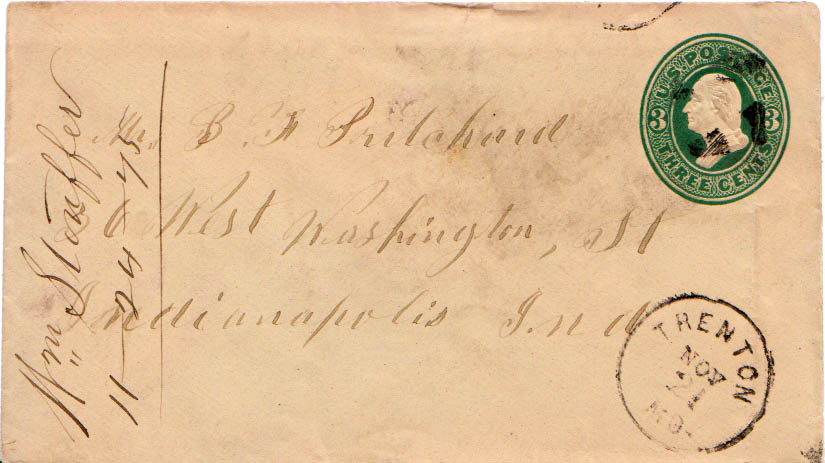 U.S. POSTAGE
3 3
THREE CENTS
Mr. B. F. Pritchard
6 West Washington, St
Indianapolis Ind
Wm Stouffer
11-24-75
TRENTON
NOV
21
MO.